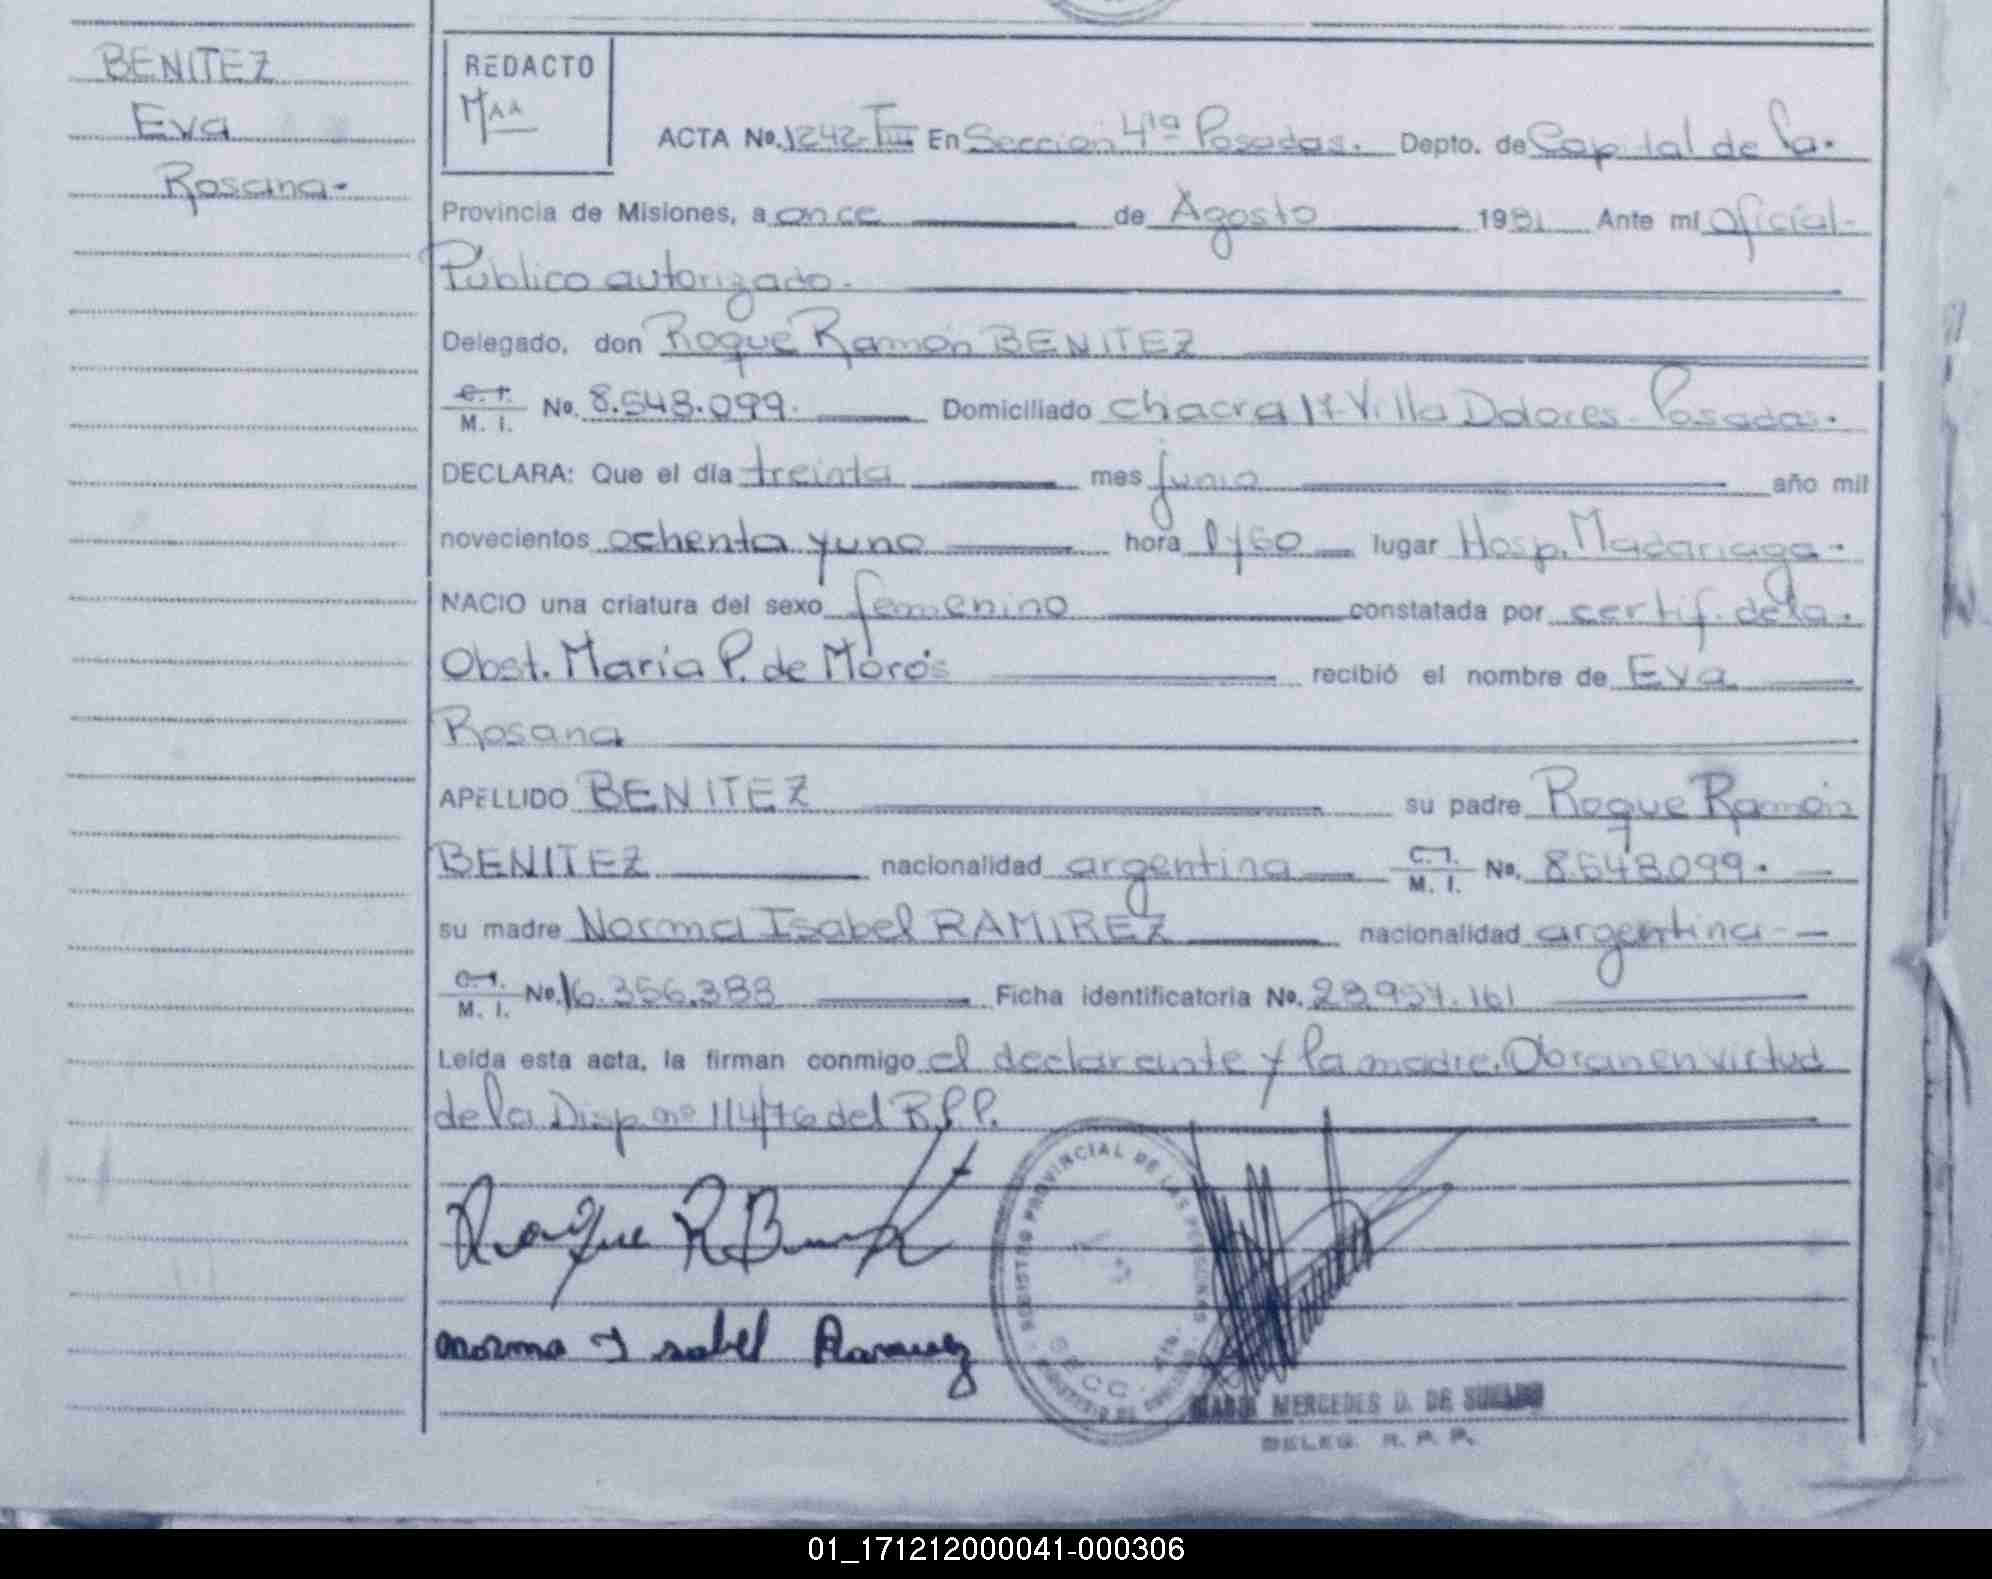 BENITEZ
Eva
Rosana-
REDACTO
MAA
ACTA No. 1242-TIII En Sección 4ta Posadas. Depto. de Capital de la.
Provincia de Misiones, a once de Agosto 1981 Ante mi Oficial-
Público autorizado.
Delegado, don Roque Ramón BENITEZ
C. I.
M. I. No. 8.548.099. Domiciliado chacra 17-Villa Dolores-Posadas.
DECLARA: Que el día treinta mes junio año mil
novecientos ochenta y uno hora lugar Hosp. Madariaga.
NACIO una criatura del sexo femenino constatada por certif. de la.
Obst. María P. de Morós recibió el nombre de Eva
Rosana
APELLIDO BENITEZ su padre Roque Ramón
BENITEZ nacionalidad argentina C. I.
M. I. No. 8.548.099.
su madre Norma Isabel RAMIREZ nacionalidad argentina-
C. I.
M. I. No. 16.356.388 Ficha identificatoria No. 28.957.161
Leída esta acta, la firman conmigo el declarante y la madre. Obran en virtud
de la Disp. no 114/76 del R.P.P.
Roque R
norma I sabel Ramirez
REGISTRO PROVINCIAL DE LAS PERSONAS
SECC. 4ta.
MERCEDES D. DE
DELEG. R. P. P.
01_171212000041-000306